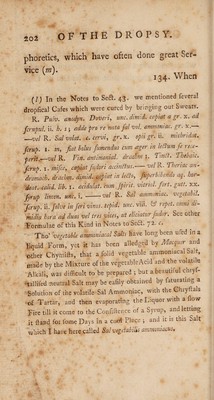 202 OF THE DROPSY.
phoretics, which have often done great Ser-
vice (m).
134. When
(l) In the Notes to Sect. 43. we mentioned several
dropsical Cases which were cured by bringing out Sweats.
R. Pulv. anodyn. Doveri, unc. dimid. capiat a gr. x. ad
scrupul. ii. h. s; adde pro re nata sal vol. ammoniac. gr. x.—
—vel R. Sal volat. c. cervi, gr. x. opii gr. ii. mithridat.
scrup. i. m. fiat bolus sumendus cum æger in lectum se rece-
perit.—vel R. Vin. antimonial. drachm i, Tinct. Thebaic.
scrup. i. misce, capiat sudori accinctus.—vel R. Theriac an-
dromach. drachm. dimid. capiat in lecto, superbibendo aq. hor-
deat. calid. lib. i. acidulat. cum spirit. vitriol. fort. gutt. xx.
syrup limon. unc. i. ——vel R. Sal ammoniac. vegetabil.
scrup. ii. solve in seri vinos. tepid. unc. viii. & repet. omni di-
midia hora ad duas vel tres vices, ut eliciatur sudor. See other
Formulae of this Kind in Notes to Sect. 72. c.
Tho' vegetable ammoniacal Salts have long been used in a
liquid Form, yet it has been alledged by Macquer and
other Chymists, that a solid vegetable ammoniacal Salt,
made by the Mixture of the vegetable Acid and the volatile
Alkali, was difficult to be prepared; but a beautiful chrys-
tallised neutral Salt may be easily obtained by saturating a
Solution of the volatile-Sal Ammoniac, with the Chrystals
of Tartar, and then evaporating the Liquor with a slow
Fire till it come to the Consistence of a Syrup, and letting
it stand for some Days in a cool Place; and it is this Salt
which I have here called Sal vegetabilis ammoniacus.